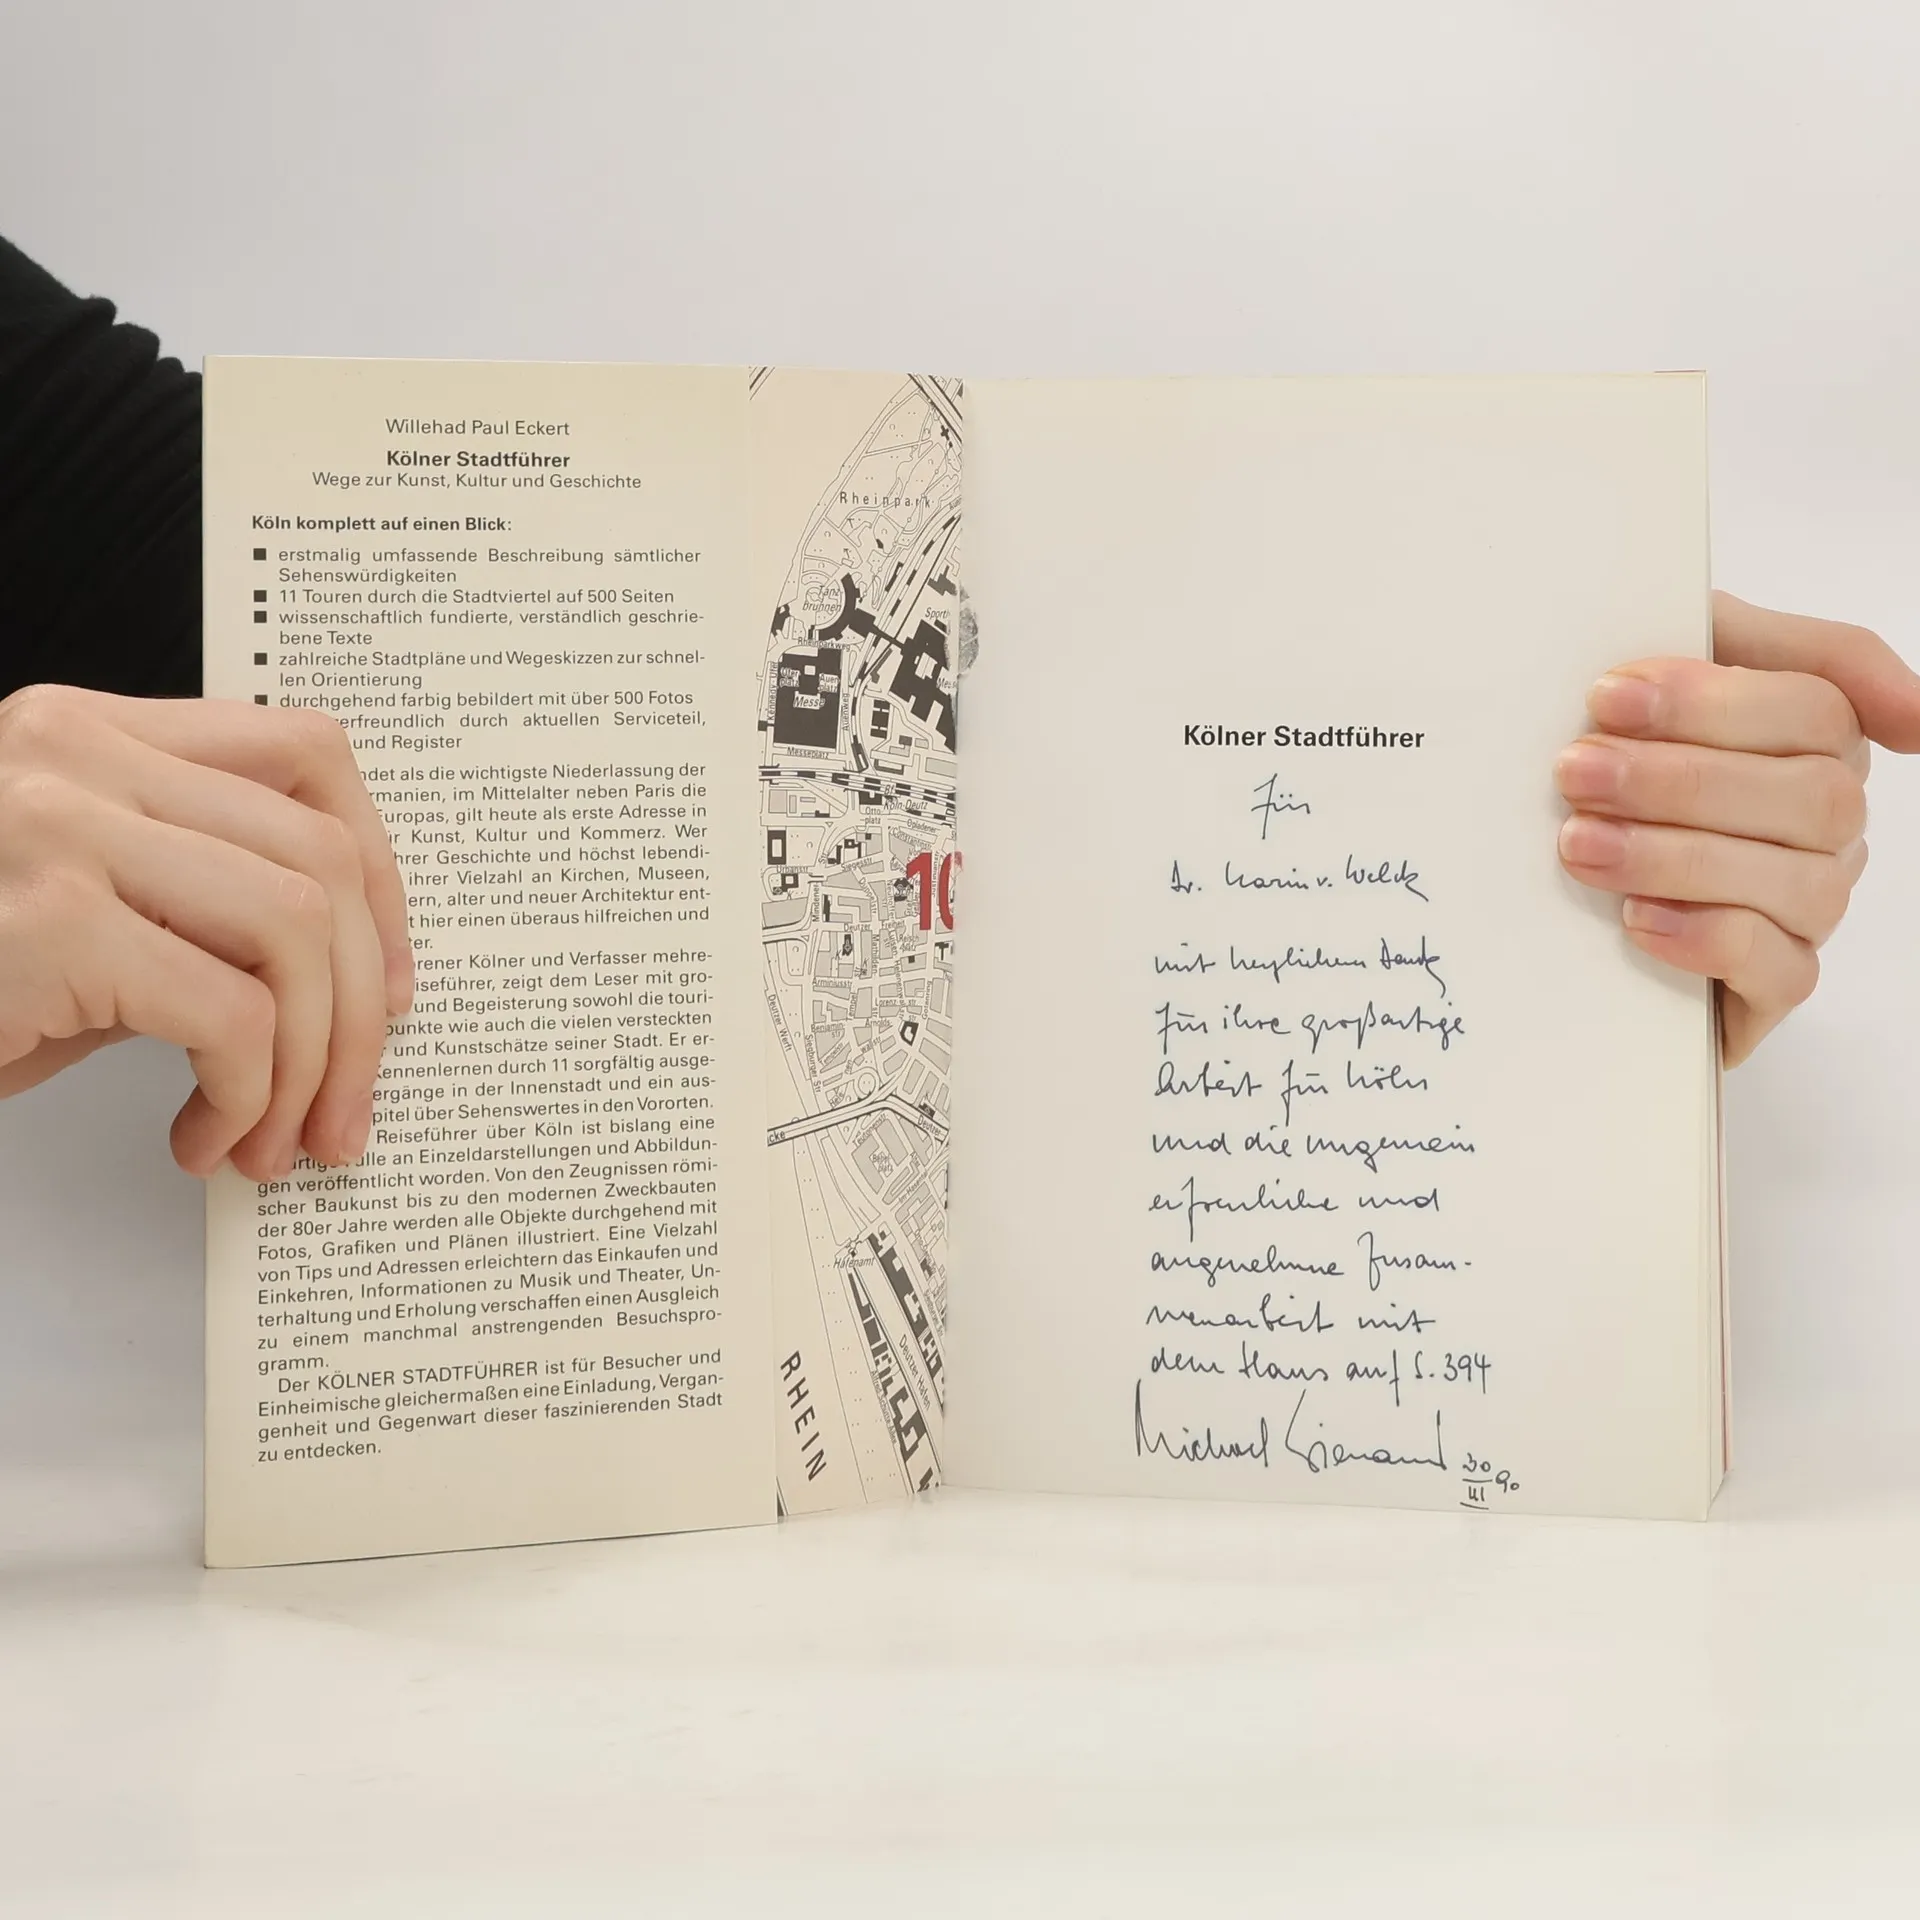 Willehad Paul Eckert
Kölner Stadtführer
Wege zur Kunst, Kultur und Geschichte
Köln komplett auf einen Blick:
■ erstmalig umfassende Beschreibung sämtlicher
Sehenswürdigkeiten
■ 11 Touren durch die Stadtviertel auf 500 Seiten
■ wissenschaftlich fundierte, verständlich geschrie-
bene Texte
■ zahlreiche Stadtpläne und Wegeskizzen zur schnel-
len Orientierung
■ durchgehend farbig bebildert mit über 500 Fotos
erfreundlich durch aktuellen Serviceteil,
und Register
ndet als die wichtigste Niederlassung der
rmanien, im Mittelalter neben Paris die
Europas, gilt heute als erste Adresse in
ir Kunst, Kultur und Kommerz. Wer
hrer Geschichte und höchst lebendi-
ihrer Vielzahl an Kirchen, Museen,
ern, alter und neuer Architektur ent-
t hier einen überaus hilfreichen und
ter.
orener Kölner und Verfasser mehre-
iseführer, zeigt dem Leser mit gro-
und Begeisterung sowohl die touri-
punkte wie auch die vielen versteckten
und Kunstschätze seiner Stadt. Er er-
Kennenlernen durch 11 sorgfältig ausge-
ergänge in der Innenstadt und ein aus-
pitel über Sehenswertes in den Vororten.
Reiseführer über Köln ist bislang eine
artige Fülle an Einzeldarstellungen und Abbildun-
gen veröffentlicht worden. Von den Zeugnissen römi-
scher Baukunst bis zu den modernen Zweckbauten
der 80er Jahre werden alle Objekte durchgehend mit
Fotos, Grafiken und Plänen illustriert. Eine Vielzahl
von Tips und Adressen erleichtern das Einkaufen und
Einkehren, Informationen zu Musik und Theater, Un-
terhaltung und Erholung verschaffen einen Ausgleich
zu einem manchmal anstrengenden Besuchspro-
gramm.
Der KÖLNER STADTFÜHRER ist für Besucher und
Einheimische gleichermaßen eine Einladung, Vergan-
genheit und Gegenwart dieser faszinierenden Stadt
zu entdecken.
Rheinpark
Tanz-
brunnen
Rheinparkweg
Kennedy-Ufer
Auenweg
Messe
Messeplatz
Bf.
Köln-Deutz
Otto-
platz
10
Mindener
Deutzer
Freiheit
Arminiusstr
Deutzer Werft
Siegburger Str
Deutzer
Hafenamt
Deutzer Hafen
RHEIN
Kölner Stadtführer
Für
Dr. Karin v. Welck
mit herzlichem Dank
für ihre großartige
Arbeit für Köln
und die ungemein
erfreuliche und
angenehme Zusam-
menarbeit mit
dem Haus auf S. 394
Michael Wienand 30
III 90